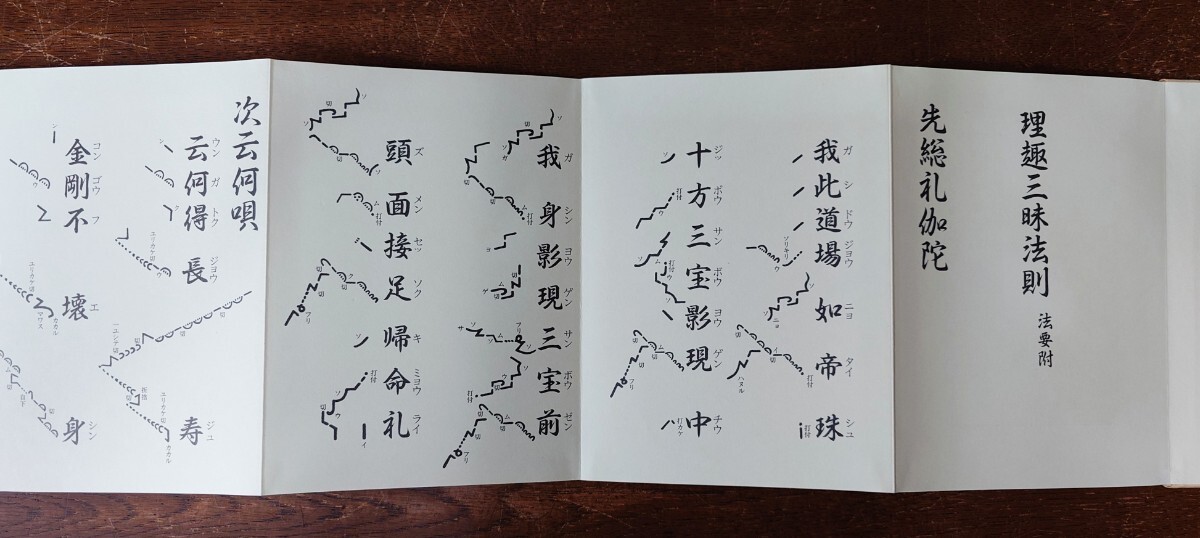 理趣三昧法則 法要附
先総礼伽陀
我此道場如帝珠
ガシドウジヨウニヨタイシユ
十方三宝影現中
ジツボウサンボウヨウゲンチウ
我身影現三宝前
ガシンヨウゲンサンボウゼン
頭面接足帰命礼
ズメンセツソクキミヨウライ
次云何唄
云何得長寿
ウンガトクジヨウジユ
金剛不壊身
コンゴウフエシン